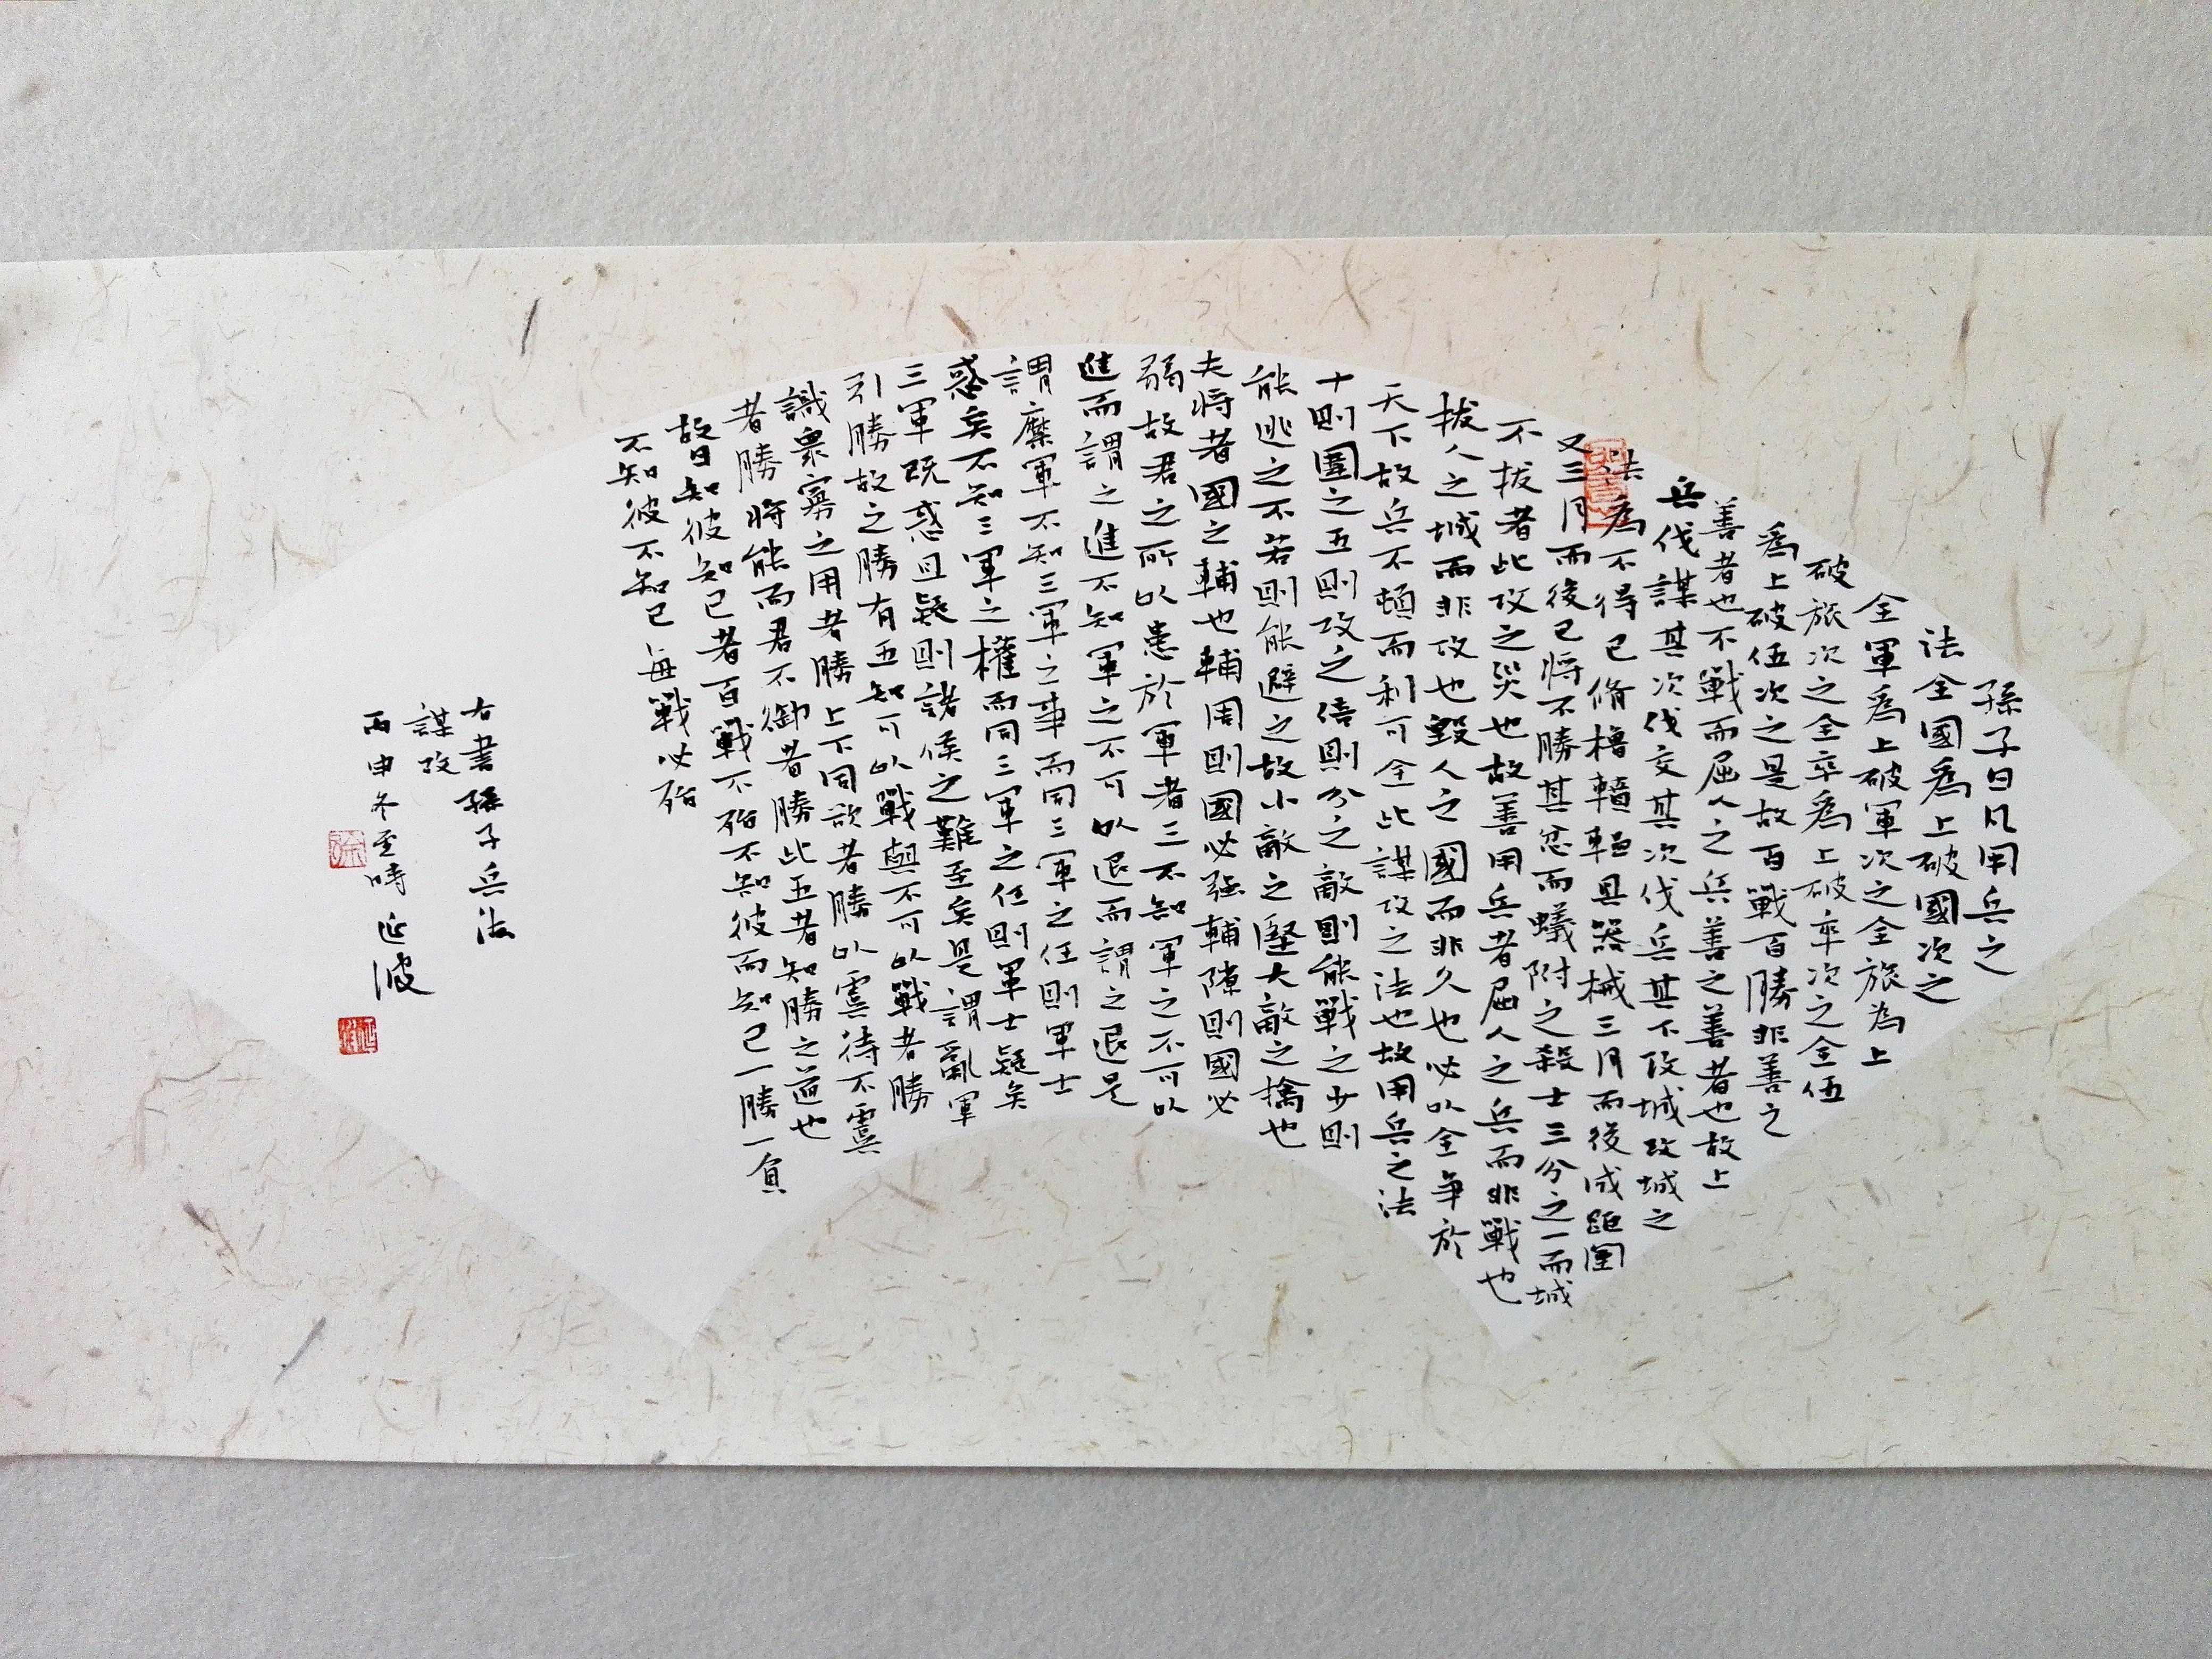 孫子曰凡用兵之
法全國爲上破國次之
全軍爲上破軍次之全旅为上
破旅次之全卒爲上破卒次之全伍
爲上破伍次之是故百戰百勝非善之
善者也不戰而屈人之兵善之善者也故上
兵伐謀其次伐交其次伐兵其下攻城攻城之
法為不得已脩櫓轒轀具器械三月而後成距闉
又三月而後已將不勝其忿而蟻附之殺士三分之一而城
不拔者此攻之災也故善用兵者屈人之兵而非戰也
拔人之城而非攻也毀人之國而非久也必以全争於
天下故兵不頓而利可全此謀攻之法也故用兵之法
十則圍之五則攻之倍則分之敵則能戰之少則
能逃之不若則能避之故小敵之堅大敵之擒也
夫將者國之輔也輔周則國必强輔隙則國必
弱故君之所以患於軍者三不知軍之不可以
進而謂之進不知軍之不可以退而謂之退是
謂縻軍不知三軍之事而同三軍之任則軍士
惑矣不知三軍之權而同三軍之任則軍士疑矣
三軍既惑且疑則諸侯之難至矣是謂亂軍
引勝故之勝有五知可以戰與不可以戰者勝
識衆寡之用者勝上下同欲者勝以虞待不虞
者勝將能而君不御者勝此五者知勝之道也
故曰知彼知己者百戰不殆不知彼而知己一勝一負
不知彼不知己每戰必殆
右書孫子兵法
謀攻
丙申冬至時延波